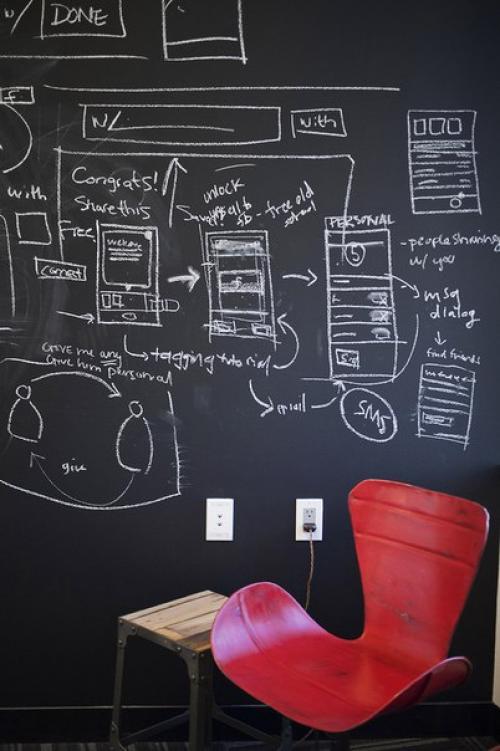 w/ DONE
F.
w/ with
Congrats!
Share this
with
unlock
- free old
Free
PERSONAL
welcome
5
- people sharing
w/ you
connect
msg
dialog
give me any
give him personal
tagging tutorial
find friends
email
SMS
give